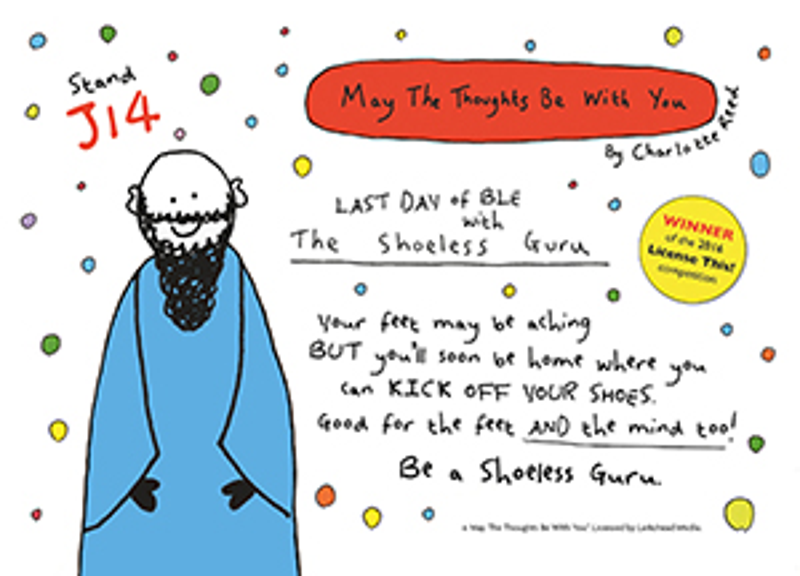 Stand
J14
May The Thoughts Be With You
By Charlotte Reed
LAST DAY of BLE
with
The Shoeless Guru
WINNER
of the 2016
License This!
competition
Your feet may be aching
BUT you'll soon be home where you
can KICK OFF YOUR SHOES.
Good for the feet AND the mind too!
Be a Shoeless Guru.
May The Thoughts Be With You" Licensed by